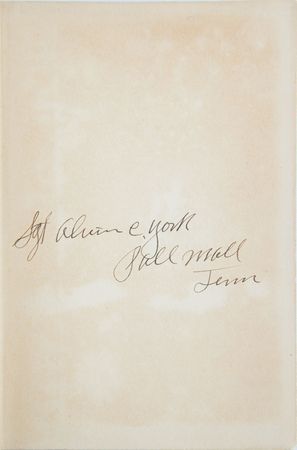 Sgt Alvin C. York
Pall Mall
Tenn